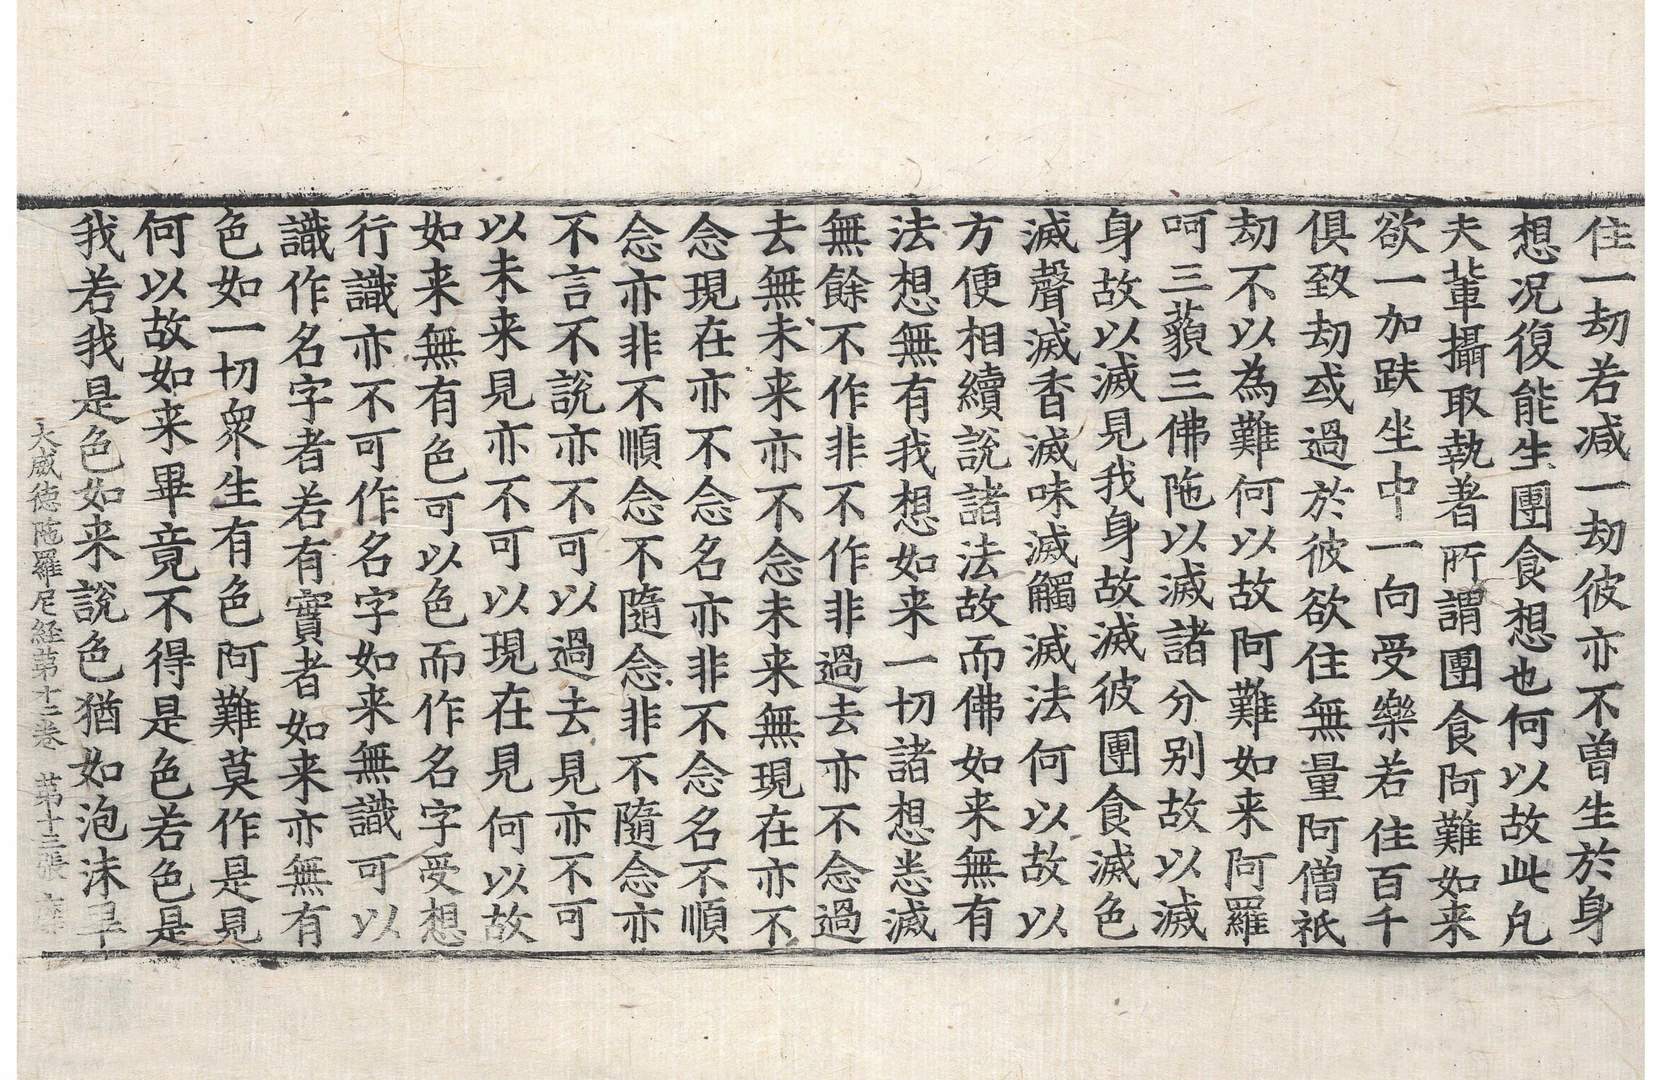 住一劫若減一劫彼亦不曾生於身
想况復能生團食想也何以故此凡
夫輩攝取執著所謂團食阿難如来
欲一加趺坐中一向受樂若住百千
俱致劫或過於彼欲住無量阿僧祇
劫不以為難何以故阿難如来阿羅
呵三藐三佛陁以滅諸分别故以滅
身故以滅見我身故滅彼團食滅色
滅聲滅香滅味滅觸滅法何以故以
方便相續說諸法故而佛如来無有
法想無有我想如来一切諸想悉滅
無餘不作非不作非過去亦不念過
去無未来亦不念未来無現在亦不
念現在亦不念名亦非不念名不順
念亦非不順念不隨念非不隨念亦
不言不說亦不可以過去見亦不可
以未来見亦不可以現在見何以故
如来無有色可以色而作名字受想
行識亦不可作名字如来無識可以
識作名字者若有實者如来亦無有
色如一切衆生有色阿難莫作是見
何以故如来畢竟不得是色若色是
我若我是色如来說色猶如泡沫早
大威德陁羅尼経苐十二卷 苐十三張